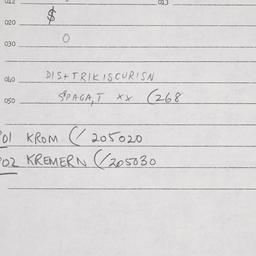 012 013
020 $
030 O
040 DISTRIKISCURISN
050 $PAGA,T xx (268
01 KROM (/ 205020
02 KREMERN (/205030